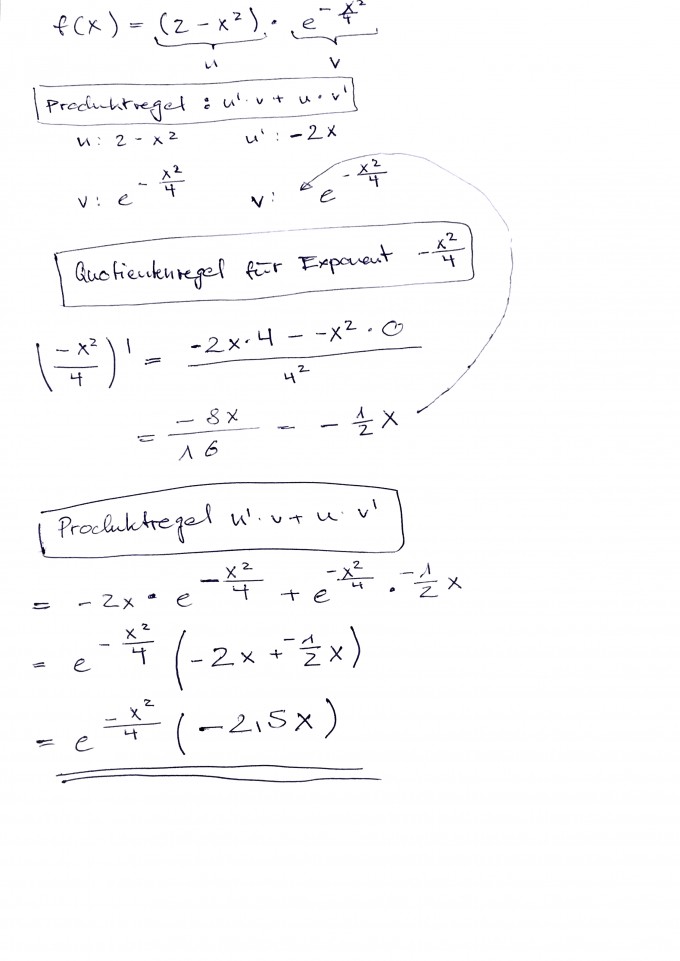 f(x) = (2 - x²) · e^(-x²/4)
u v
Produktregel : u' · v + u · v'
u : 2 - x² u' : -2x
v : e^(-x²/4) v : e^(-x²/4)
Quotientenregel für Exponent -x²/4
(-x²/4)' = (-2x · 4 - -x² · 0)/4²
= -8x/16 = -1/2 x
Produktregel u' · v + u · v'
= -2x · e^(-x²/4) + e^(-x²/4) · -1/2 x
= e^(-x²/4) (-2x + -1/2 x)
= e^(-x²/4) (-2,5x)